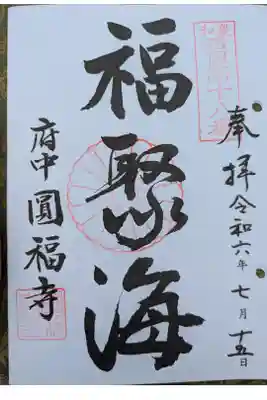 奉拝令和六年七月十五日
福聚海
府中圓福寺